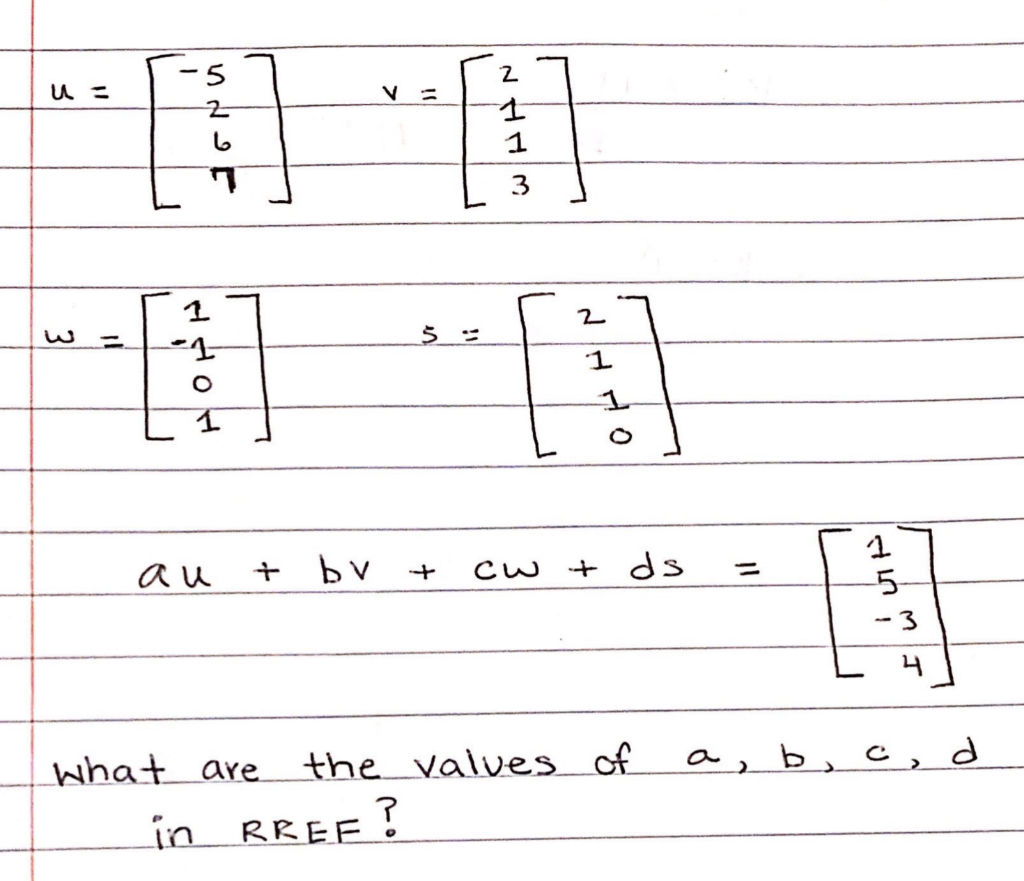 u = [-5 2 6 7] v = [2 1 1 3]
w = [1 -1 0 1] s = [2 1 1 0]
au + bv + cw + ds = [1 5 -3 4]
What are the values of a, b, c, d
in RREF?